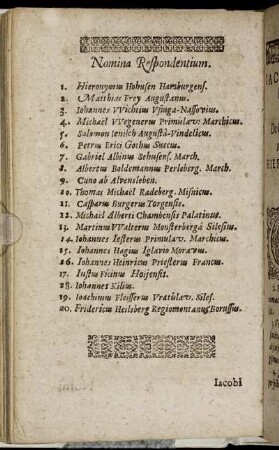 Nomina Respondentium.
1. Hieronymus Hohusen Hamburgens.
2. Matthias Frey Augustanus.
3. Iohannes VVichius Vsinga-Nassovius.
4. Michaël VVegenerus Primulaw. Marchicus.
5. Salomon Ienisch Augustâ-Vindelicus.
6. Petrus Erici Gothus Suecus.
7. Gabriel Albinus Sehusens. March.
8. Albertus Boldemannus Perleberg. March.
9. Cuno ab Alvensleben.
10. Thomas Michaël Radeberg. Misnicus.
11. Casparus Burgerus Torgensis.
12. Michaël Alberti Chambensis Palatinus.
13. Martinus VValterus Monsterbergâ Silesius.
14. Iohannes Iesterus Primulaw. Marchicus.
15. Iohannes Hagius Iglaviâ Moravus.
16. Iohannes Heinricus Priesterus Francus.
17. Iustus Ficinus Hojensis.
18. Iohannes Kilius.
19. Ioachimus Fleisserus Vratislaw. Siles.
20. Fridericus Heilsberg Regiomontanus Borussus.
Iacobi